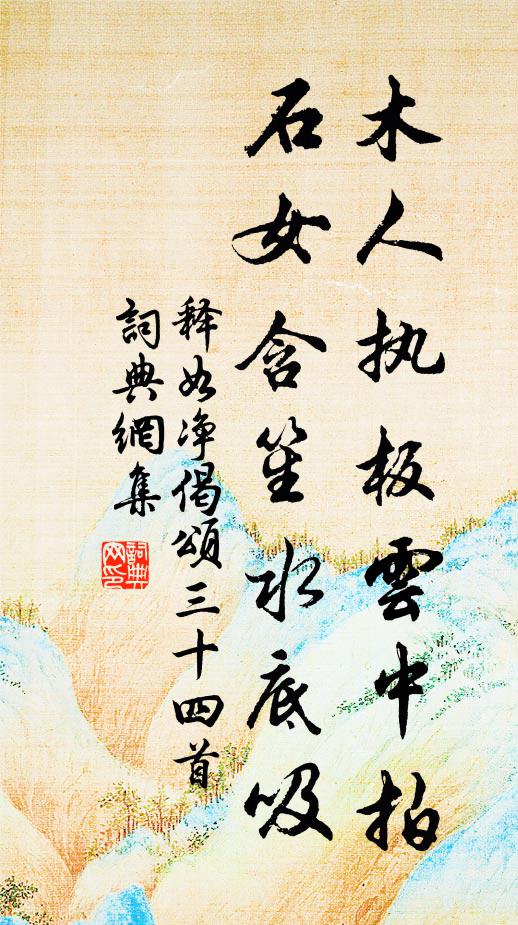 木人执板雲中拍
石女含笙水底吸
释如净偈頌三十四首
詞典網集
詞典网印